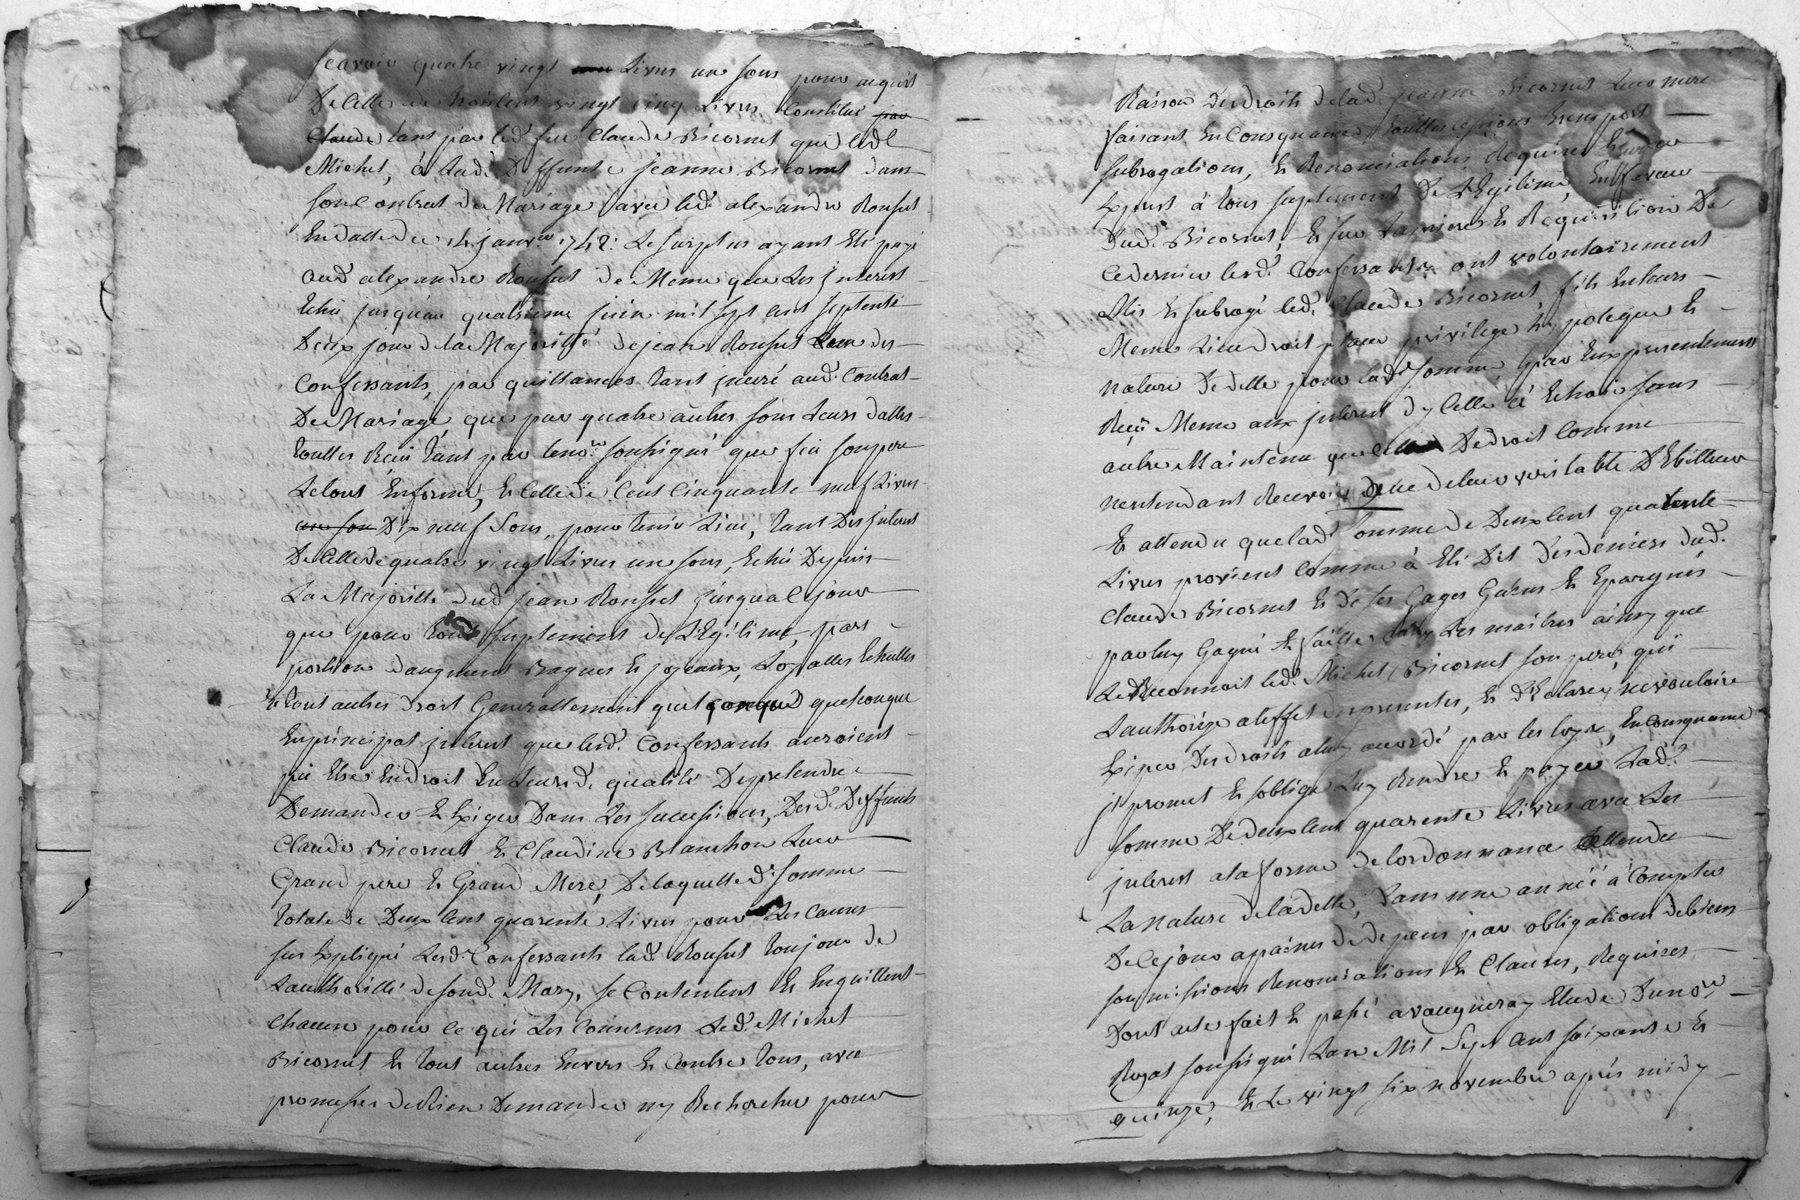 scavoir quatre vingt livres un sous pour acquit
De Celle de trois cent vingt cinq Livres Constitué par
Claude tant par led. feu Claude Bicornet que led.
Michel, á Lad.e Deffunte jeanne Bicornet dans
son Contrat de Mariage avec led. alexandre Ronfut
En datte du 14 janv.er 1748. Le surplus ayant Eté payé
aud. alexandre Ronfut de Meme que Les jnterest
Echu jusqu'au quatrieme juin mil sept cent septente
Deux jour de la Majorité de jean Ronfut L'un des
Confessants, par quittances tant jnseré aud. Contrat
De Mariage, que par quatre autres sous Leurs dattes
touttes Reçu tant par le no.re soussigné que feu son pere
Le tout En forme, Et Celle de Cent Cinquante neuf Livres
un sou Dix neuf Sous, pour tenir Lieu, tant Des jnterest
De Celle de quatre vingt Livres un sous, Echu Depuis
La Majorité dud. jean Ronfut jusqu'a Ce jour
que pour tout suplement de Legitime, pars
portion d'augment Bagues Et joyeaux, Loyalles Echuttes
Et tout autres droit Generallement quelconque quelconque
En principal jnterest que lesd. Confessants auroient
pu Etre En droit En leursd. qualité De pretendre
Demander Et Exiger Dans Les successions, Desd. Deffunts
Claude Bicornet Et Claudine Blanchon Leur
Grand pere Et Grand Mere, De laquelled. somme
totale de Deux Cent quarente Livres pour Les Causes
sus Expliqué Lesd. Confessants lad. Ronfut toujour de
L'authorité de sond. Mary, se Contentent Et En quittent
chacun pour ce qui Les Concernes Led. Michel
Bicornet Et tout autres Envers Et Contre tous, avec
promesses de Rien Demander ny Rechercher pour
Raison Des droits de lad. jeanne Bicornet Leur mere
faisant En Consequance touttes Cessions transport
subrogations, Et Renonciations Requises
Expres á tous suplement De Legitime, En faveur
Dud. Bicornet, Et sur la priere Et Requisition De
Ce dernier lesd. Confessants ont volontairement
Mis Et subrogé led. Claude Bicornet, fils En leurs
Meme Lieu droit place privilege hypoteque Et
nature De dette pour lad. somme par Eux presentement
Reçu Meme aux jnterest d'y Celle á Echoir sans
autre Maintenu que De droit Comme
n'entendant Recevoir que de leur veritable Debitteur
Et attendu que lad. somme de Deux Cent quarente
Livres provient Comme á Eté Dit Des deniers dud.
Claude Bicornet Et De ses Gages Gains Et Epargnes
par luy Gagné Et faitte chez Les maitres ainsy que
Le Reconnoit led. Michel Bicornet son pere, qui
L'authorise a l'effet des presentes, Et Declarey ne vouloire
Exiper Des droits a luy accordé par les loyx, En Consequance
jl promet Et s'oblige Luy Rendre Et payer Lad.
somme De deux Cent quarente Livres avec Les
jnterest a la forme de l'ordonnance attendu
La nature de la dette, Dans une année á Compter
De Ce jour a paines de depens par obligations de biens
soumissions Renonciations Et Clauses, Requises
Dont acte fait Et passé a vaugneray Etude Du no.re
Royal soussigné L'an Mil Sept Cent soixante Et
quinze, Et Le vingt six novembre aprés midy